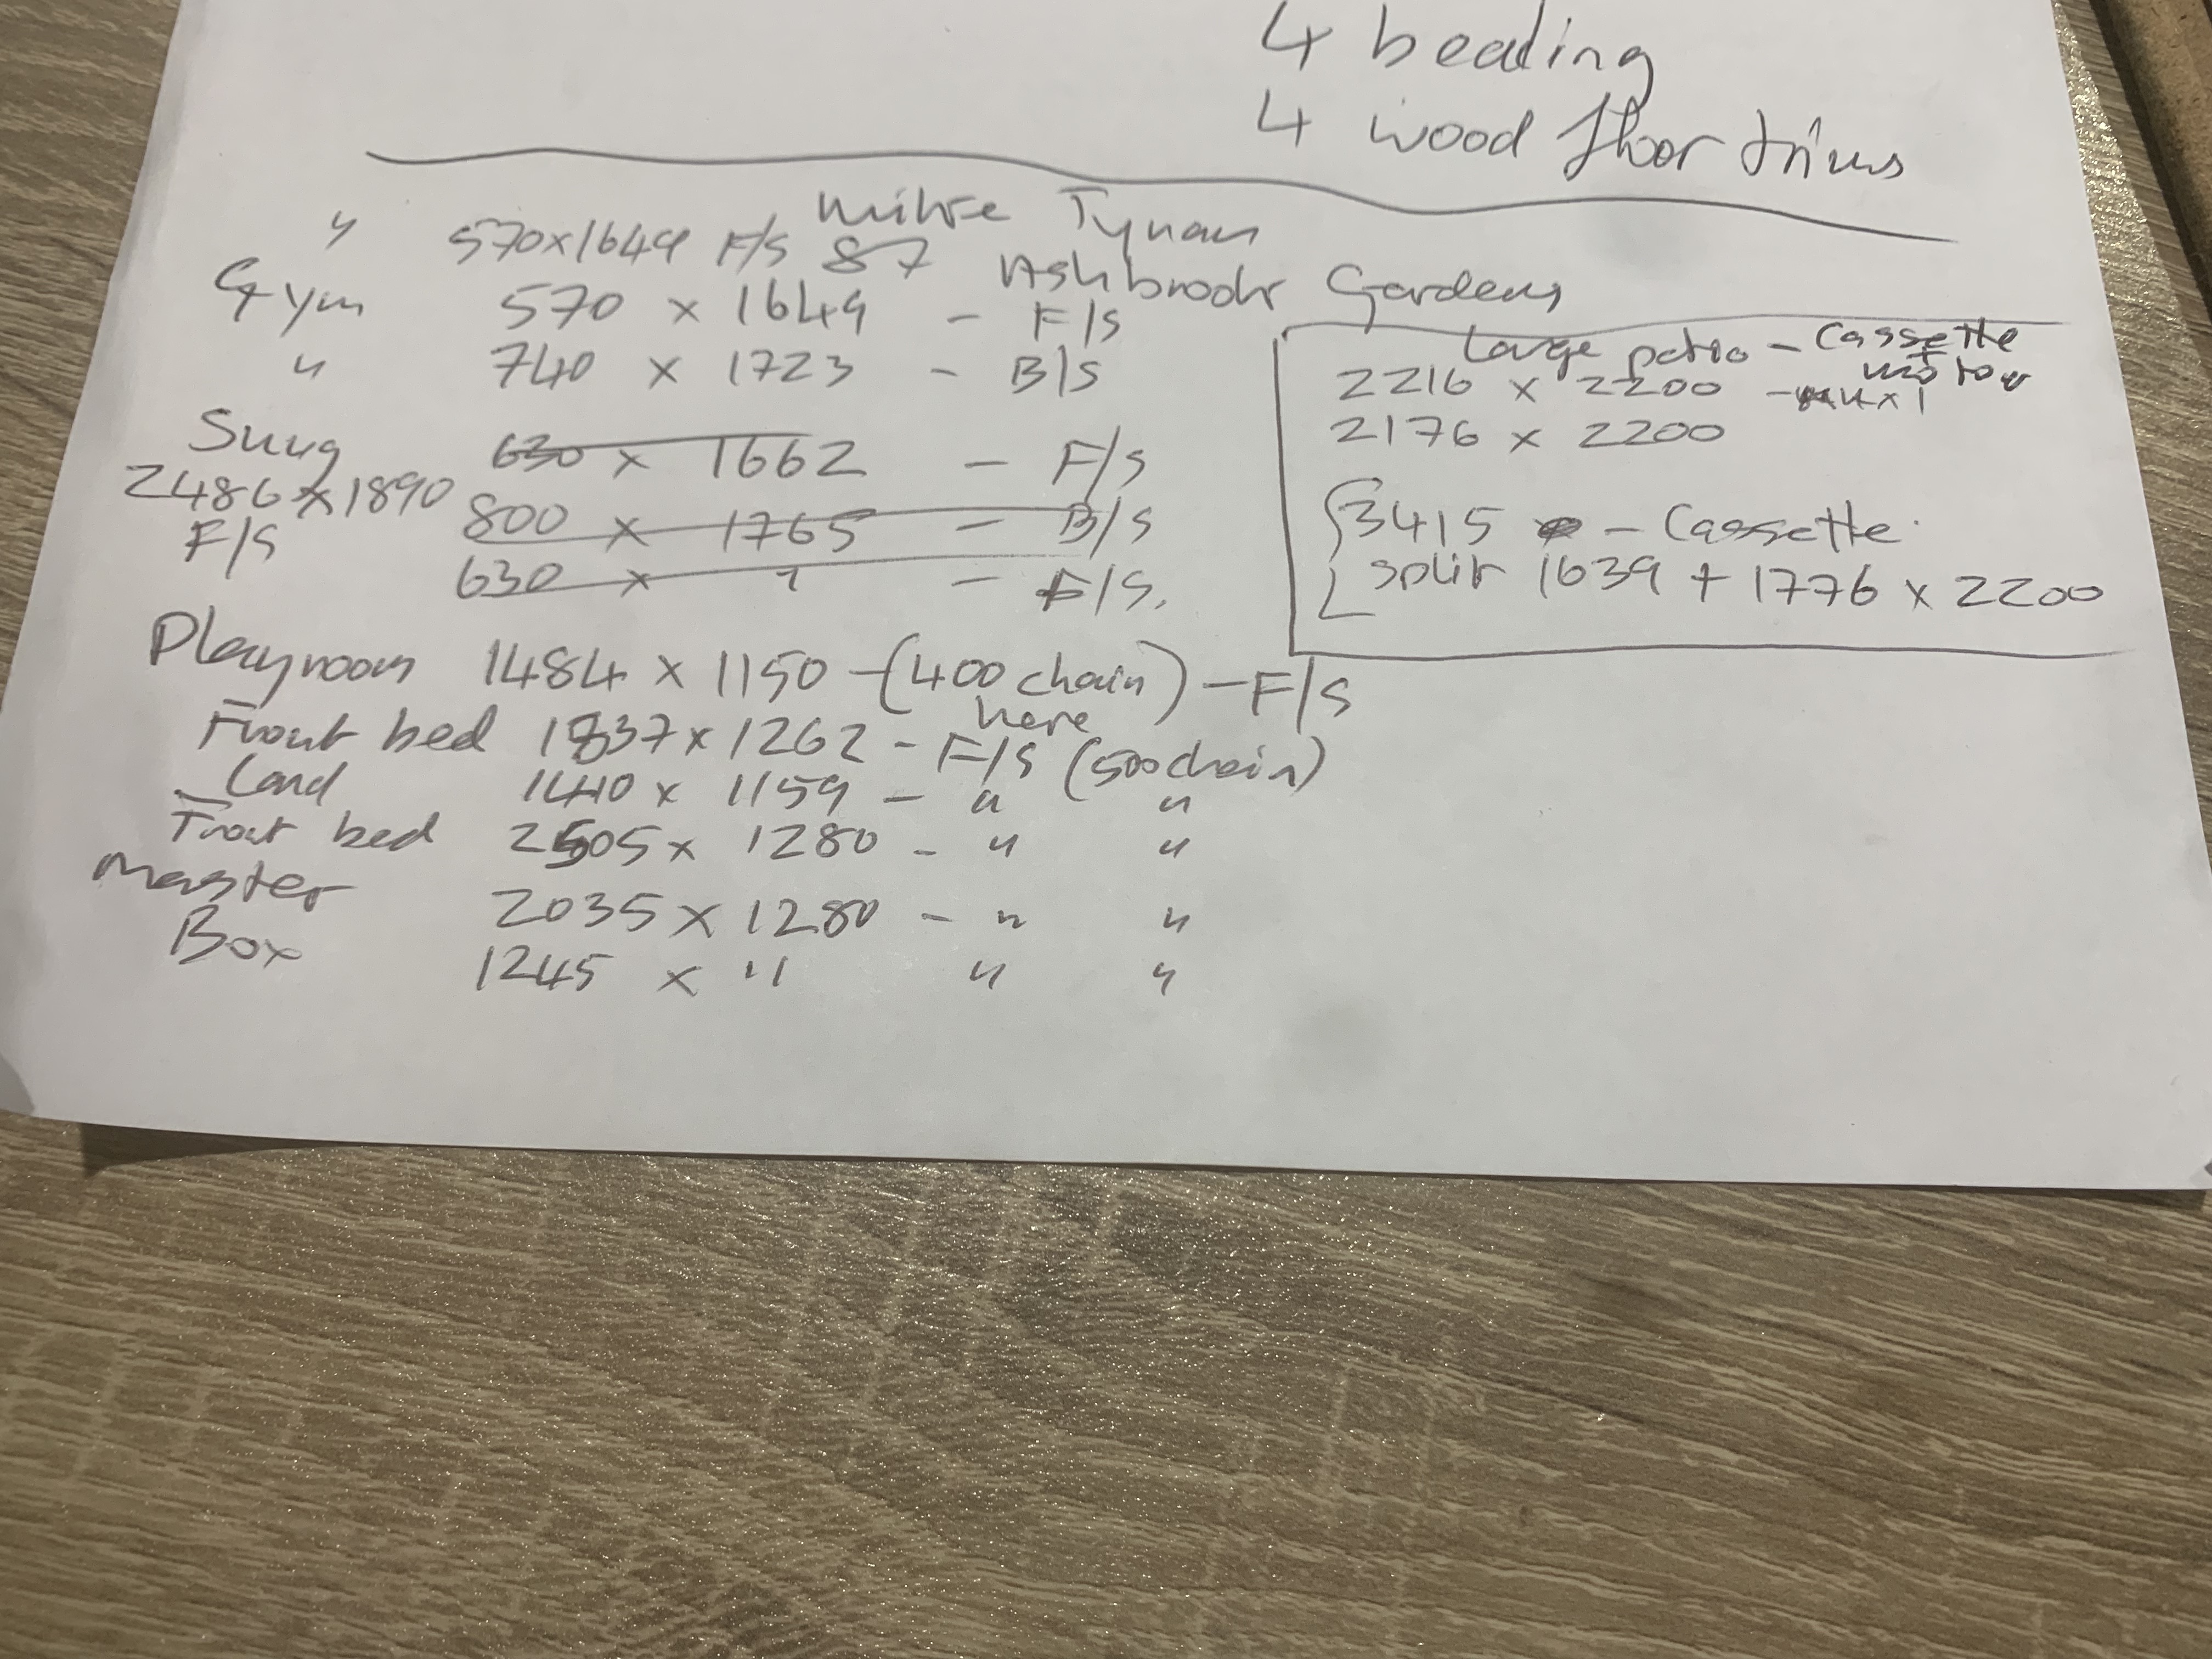 4 beading
4 wood floor trims
Mike Tynan
" 570x1649 F/S 87 Ashbrook Gardens
Gym 570 x 1649 - F/S
" 740 x 1723 - B/S
Snug 630 x 1662 - F/S
2486 x 1890 800 x 1765 - B/S
F/S 630 x " - F/S.
Playroom 1484 x 1150 - (400 chain) - F/S
here
Front bed 1837 x 1262 - F/S (500 chain)
Land 1410 x 1159 - " "
Front bed 2505 x 1280 - " "
Master 2035 x 1280 - " "
Box 1245 x " " "
Large patio - Cassette
+ motor
2216 x 2200
2176 x 2200
3415 - Cassette
split 1639 + 1776 x 2200